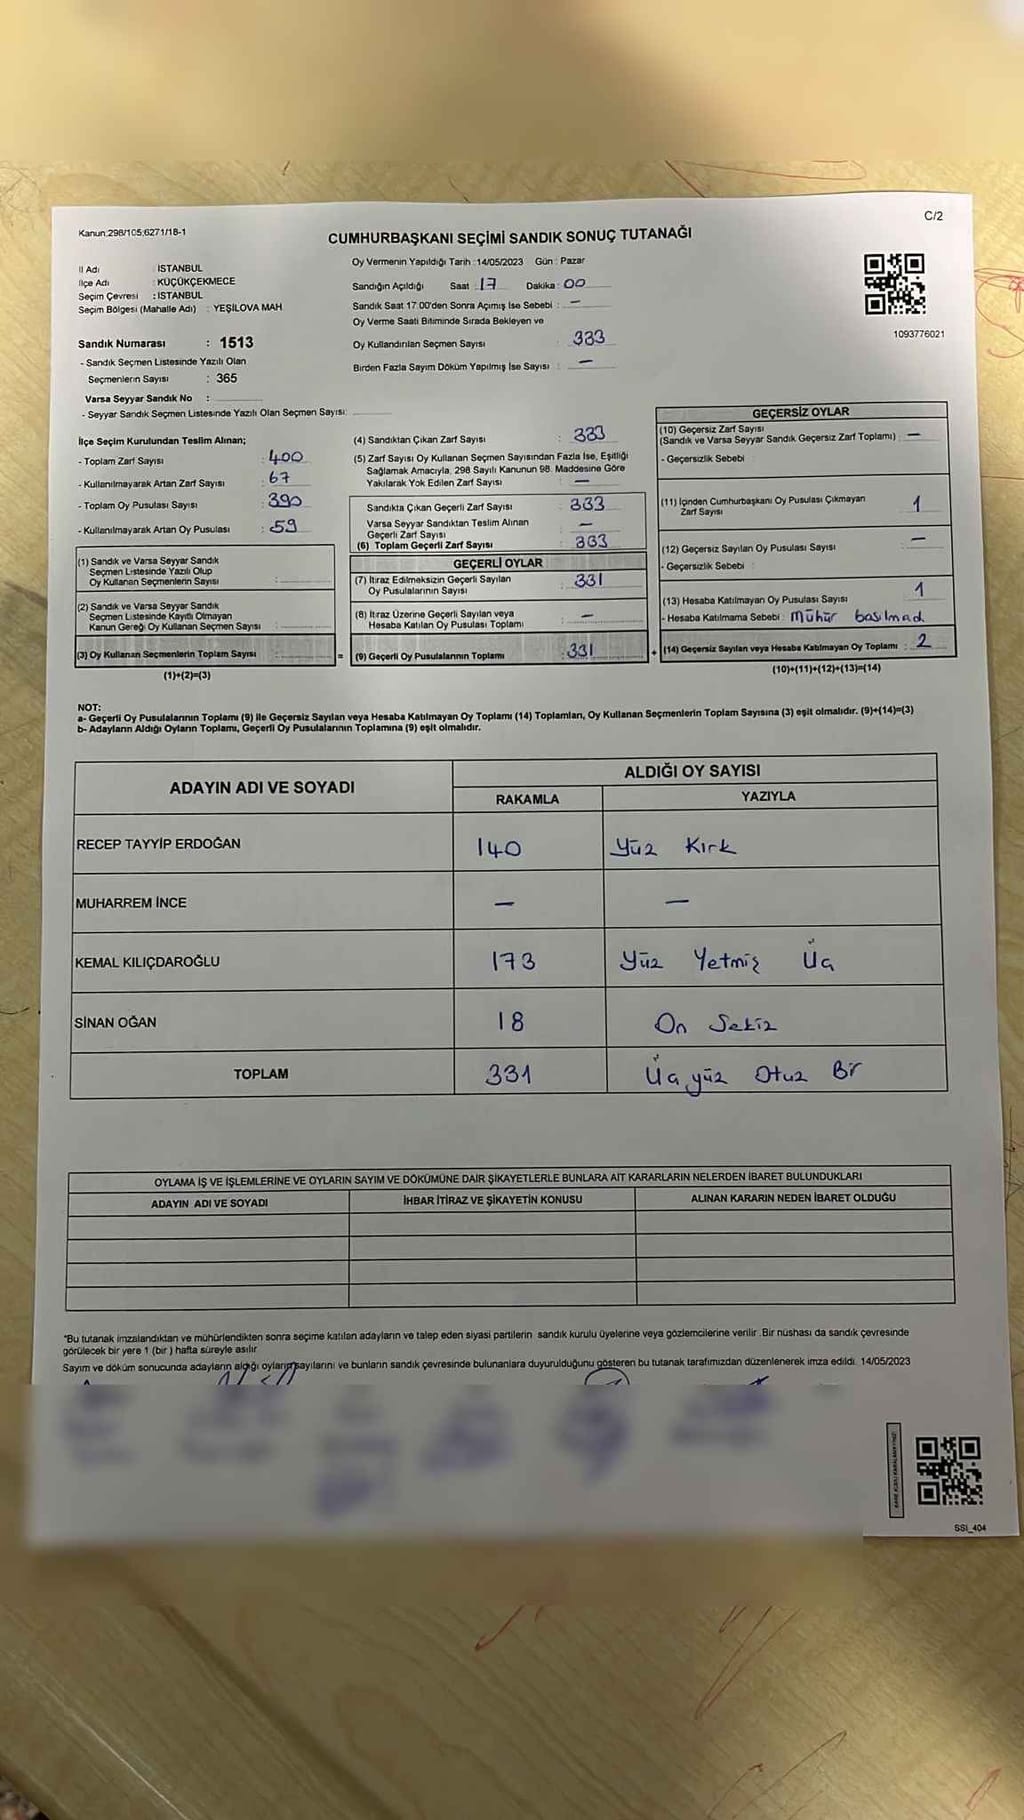 C/2
Kanun:298/105;6271/18-1
CUMHURBAŞKANI SEÇİMİ SANDIK SONUÇ TUTANAĞI
İl Adı : İSTANBUL
İlçe Adı : KÜÇÜKÇEKMECE
Seçim Çevresi : İSTANBUL
Seçim Bölgesi (Mahalle Adı) : YEŞİLOVA MAH
Sandık Numarası : 1513
- Sandık Seçmen Listesinde Yazılı Olan
Seçmenlerin Sayısı : 365
Varsa Seyyar Sandık No :
- Seyyar Sandık Seçmen Listesinde Yazılı Olan Seçmen Sayısı:
Oy Vermenin Yapıldığı Tarih :14/05/2023 Gün : Pazar
Sandığın Açıldığı Saat : 17 Dakika : 00
Sandık Saat 17:00'den Sonra Açımış İse Sebebi : —
Oy Verme Saati Bitiminde Sırada Bekleyen ve
Oy Kullandırılan Seçmen Sayısı : 333
Birden Fazla Sayım Döküm Yapılmış İse Sayısı : —
1093776021
İlçe Seçim Kurulundan Teslim Alınan;
- Toplam Zarf Sayısı : 400
- Kullanılmayarak Artan Zarf Sayısı : 67
- Toplam Oy Pusulası Sayısı : 390
- Kullanılmayarak Artan Oy Pusulası : 59
(1) Sandık ve Varsa Seyyar Sandık
Seçmen Listesinde Yazılı Olup
Oy Kullanan Seçmenlerin Sayısı :
(2) Sandık ve Varsa Seyyar Sandık
Seçmen Listesinde Kayıtlı Olmayan
Kanun Gereği Oy Kullanan Seçmen Sayısı :
(3) Oy Kullanan Seçmenlerin Toplam Sayısı :
(1)+(2)=(3)
(4) Sandıktan Çıkan Zarf Sayısı : 333
(5) Zarf Sayısı Oy Kullanan Seçmen Sayısından Fazla İse, Eşitliği
Sağlamak Amacıyla, 298 Sayılı Kanunun 98. Maddesine Göre
Yakılarak Yok Edilen Zarf Sayısı : —
Sandıkta Çıkan Geçerli Zarf Sayısı : 333
Varsa Seyyar Sandıktan Teslim Alınan
Geçerli Zarf Sayısı : —
(6) Toplam Geçerli Zarf Sayısı : 333
GEÇERLİ OYLAR
(7) İtiraz Edilmeksizin Geçerli Sayılan
Oy Pusulalarının Sayısı : 331
(8) İtiraz Üzerine Geçerli Sayılan veya
Hesaba Katılan Oy Pusulası Toplamı : —
= (9) Geçerli Oy Pusulalarının Toplamı : 331
GEÇERSİZ OYLAR
(10) Geçersiz Zarf Sayısı
(Sandık ve Varsa Seyyar Sandık Geçersiz Zarf Toplamı) : —
- Geçersizlik Sebebi :
(11) İçinden Cumhurbaşkanı Oy Pusulası Çıkmayan
Zarf Sayısı : 1
(12) Geçersiz Sayılan Oy Pusulası Sayısı : —
- Geçersizlik Sebebi :
(13) Hesaba Katılmayan Oy Pusulası Sayısı : 1
- Hesaba Katılmama Sebebi : Mühür basılmad
+ (14) Geçersiz Sayılan veya Hesaba Katılmayan Oy Toplamı : 2
(10)+(11)+(12)+(13)=(14)
NOT:
a- Geçerli Oy Pusulalarının Toplamı (9) İle Geçersiz Sayılan veya Hesaba Katılmayan Oy Toplamı (14) Toplamları, Oy Kullanan Seçmenlerin Toplam Sayısına (3) eşit olmalıdır. (9)+(14)=(3)
b- Adayların Aldığı Oyların Toplamı, Geçerli Oy Pusulalarının Toplamına (9) eşit olmalıdır.
ADAYIN ADI VE SOYADI ALDIĞI OY SAYISI
RAKAMLA YAZIYLA
RECEP TAYYİP ERDOĞAN 140 Yüz Kırk
MUHARREM İNCE — —
KEMAL KILIÇDAROĞLU 173 Yüz Yetmiş Üç
SİNAN OĞAN 18 On Sekiz
TOPLAM 331 Üçyüz Otuz Bir
OYLAMA İŞ VE İŞLEMLERİNE VE OYLARIN SAYIM VE DÖKÜMÜNE DAİR ŞİKAYETLERLE BUNLARA AİT KARARLARIN NELERDEN İBARET BULUNDUKLARI
ADAYIN ADI VE SOYADI İHBAR İTİRAZ VE ŞİKAYETİN KONUSU ALINAN KARARIN NEDEN İBARET OLDUĞU
*Bu tutanak imzalandıktan ve mühürlendikten sonra seçime katılan adayların ve talep eden siyasi partilerin sandık kurulu üyelerine veya gözlemcilerine verilir. Bir nüshası da sandık çevresinde
görülecek bir yere 1 (bir) hafta süreyle asılır.
Sayım ve döküm sonucunda adayların aldığı oyların sayılarını ve bunların sandık çevresinde bulunanlara duyurulduğunu gösteren bu tutanak tarafımızdan düzenlenerek imza edildi. 14/05/2023
SSI_404